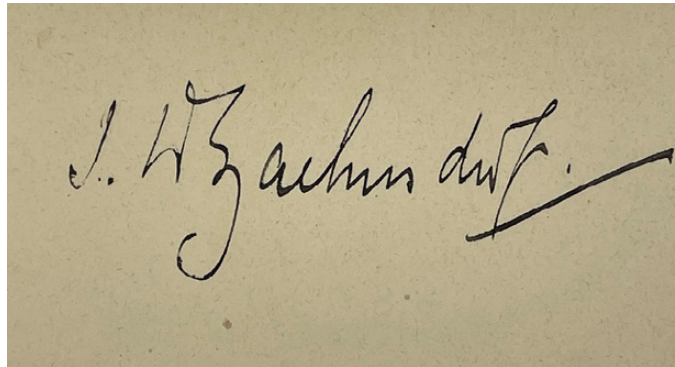 J. W Zaehnsdorf.